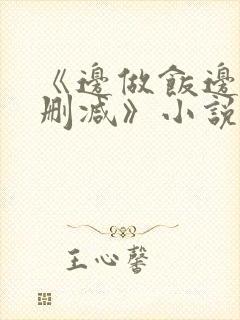 《邊做飯邊
刪减》小説
王心馨